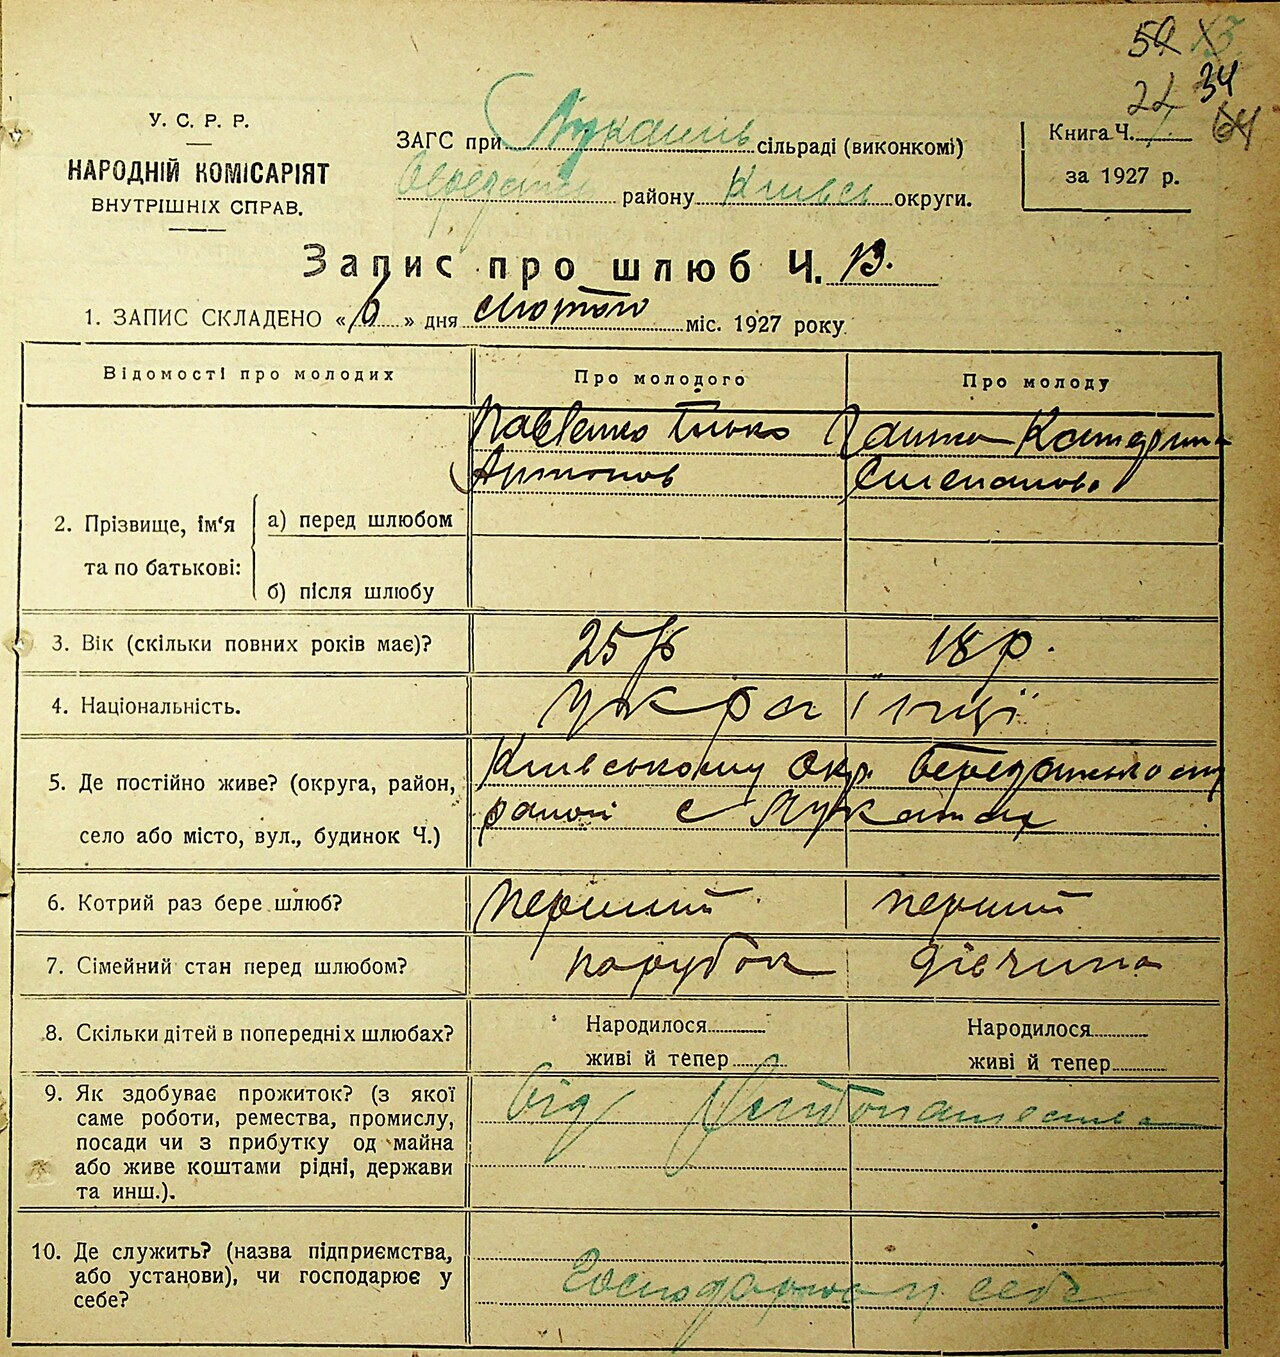 34
У. С. Р. Р.
НАРОДНІЙ КОМІСАРІЯТ
ВНУТРІШНІХ СПРАВ.
ЗАГС при Лукашів сільраді (виконкомі)
району Київсь округи.
Книга Ч.
за 1927 р.
Запис про шлюб Ч. 13.
1. ЗАПИС СКЛАДЕНО « 6 » дня лютого міс. 1927 року
Відомості про молодих
Про молодого
Про молоду
Павленко Ілько
Катерина
Антонов
Степанов.
2. Прізвище, ім'я та по батькові:
а) перед шлюбом
б) після шлюбу
3. Вік (скільки повних років має)?
25 р
18 р.
4. Національність.
українці
5. Де постійно живе? (округа, район, село або місто, вул., будинок Ч.)
Київському окр.
районі с Лукашах
6. Котрий раз бере шлюб?
перший
перший
7. Сімейний стан перед шлюбом?
парубок
дівчина
8. Скільки дітей в попередніх шлюбах?
Народилося
живі й тепер
Народилося
живі й тепер
9. Як здобуває прожиток? (з якої
саме роботи, ремества, промислу,
посади чи з прибутку од майна
або живе коштами рідні, держави
та инш.).
від
10. Де служить? (назва підприємства,
або установи), чи господарює у
себе?
Господарює у себе